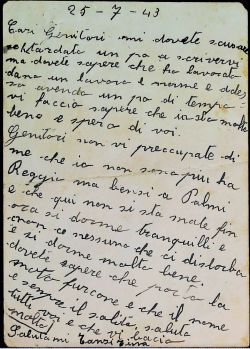 25-7-43
Cari Genitori mi dovete scusare
se htardato un pò a scrivervi
ma dovete sapere che ho lavorato
un lavoro e
avendo un po di tempo
vi faccio sapere che io sto molto
bene e spero di voi.
Genitori non vi preocupate di
me che io non sono più ha
Reggio ma bensi a Palmi
e che qui non si sta male fin
ora si dorme tranquilli e
nessuno che ci disturba
e si dorme molto bene.
doveti sapere che porto la
moto furcone e che il nome
e sempre il solito, saluta
tutti voi e che vi bacia
molto
Salutami